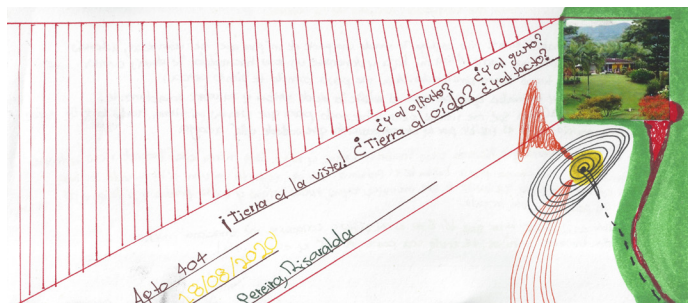 ¡Tierra a la vista! ¿Tierra al oído? ¿Y al tacto?
¿Y al olfato? ¿Y al gusto?
Apto 404
18/08/2020
Pereira, Risaralda